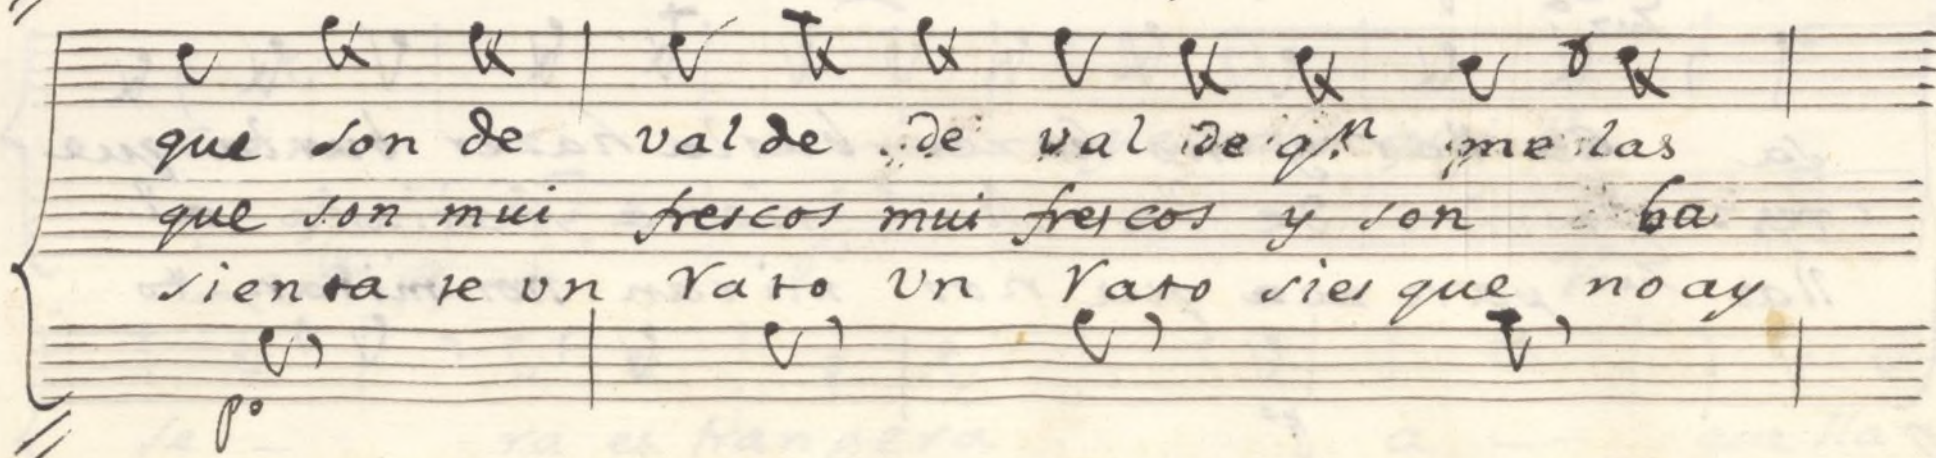 que son de valde de val de qn me las
que son mui frescos mui frescos y son ba
sientate un Rato Un Rato sies que no ay
po